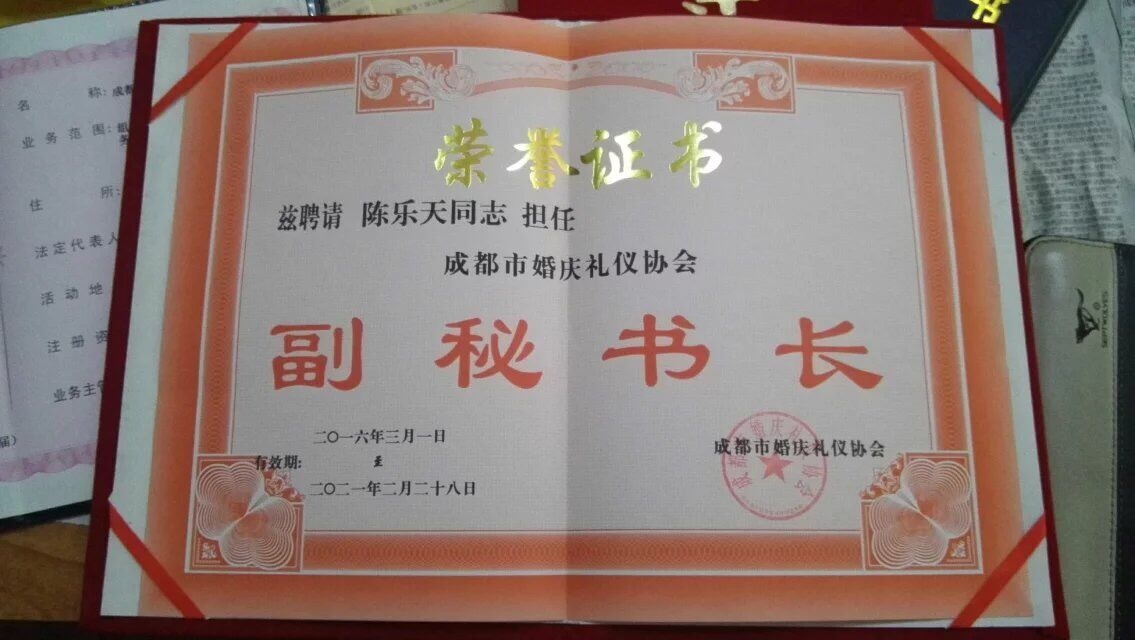 荣誉证书
兹聘请 陈乐天同志 担任
成都市婚庆礼仪协会
副秘书长
二〇一六年三月一日
有效期: 至
二〇二一年二月二十八日
成都市婚庆礼仪协会
名 称: 成都
业务范围:
住 所:
法定代表人
活动地
注册资
业务主管
届)
书
SEPTWOLVES